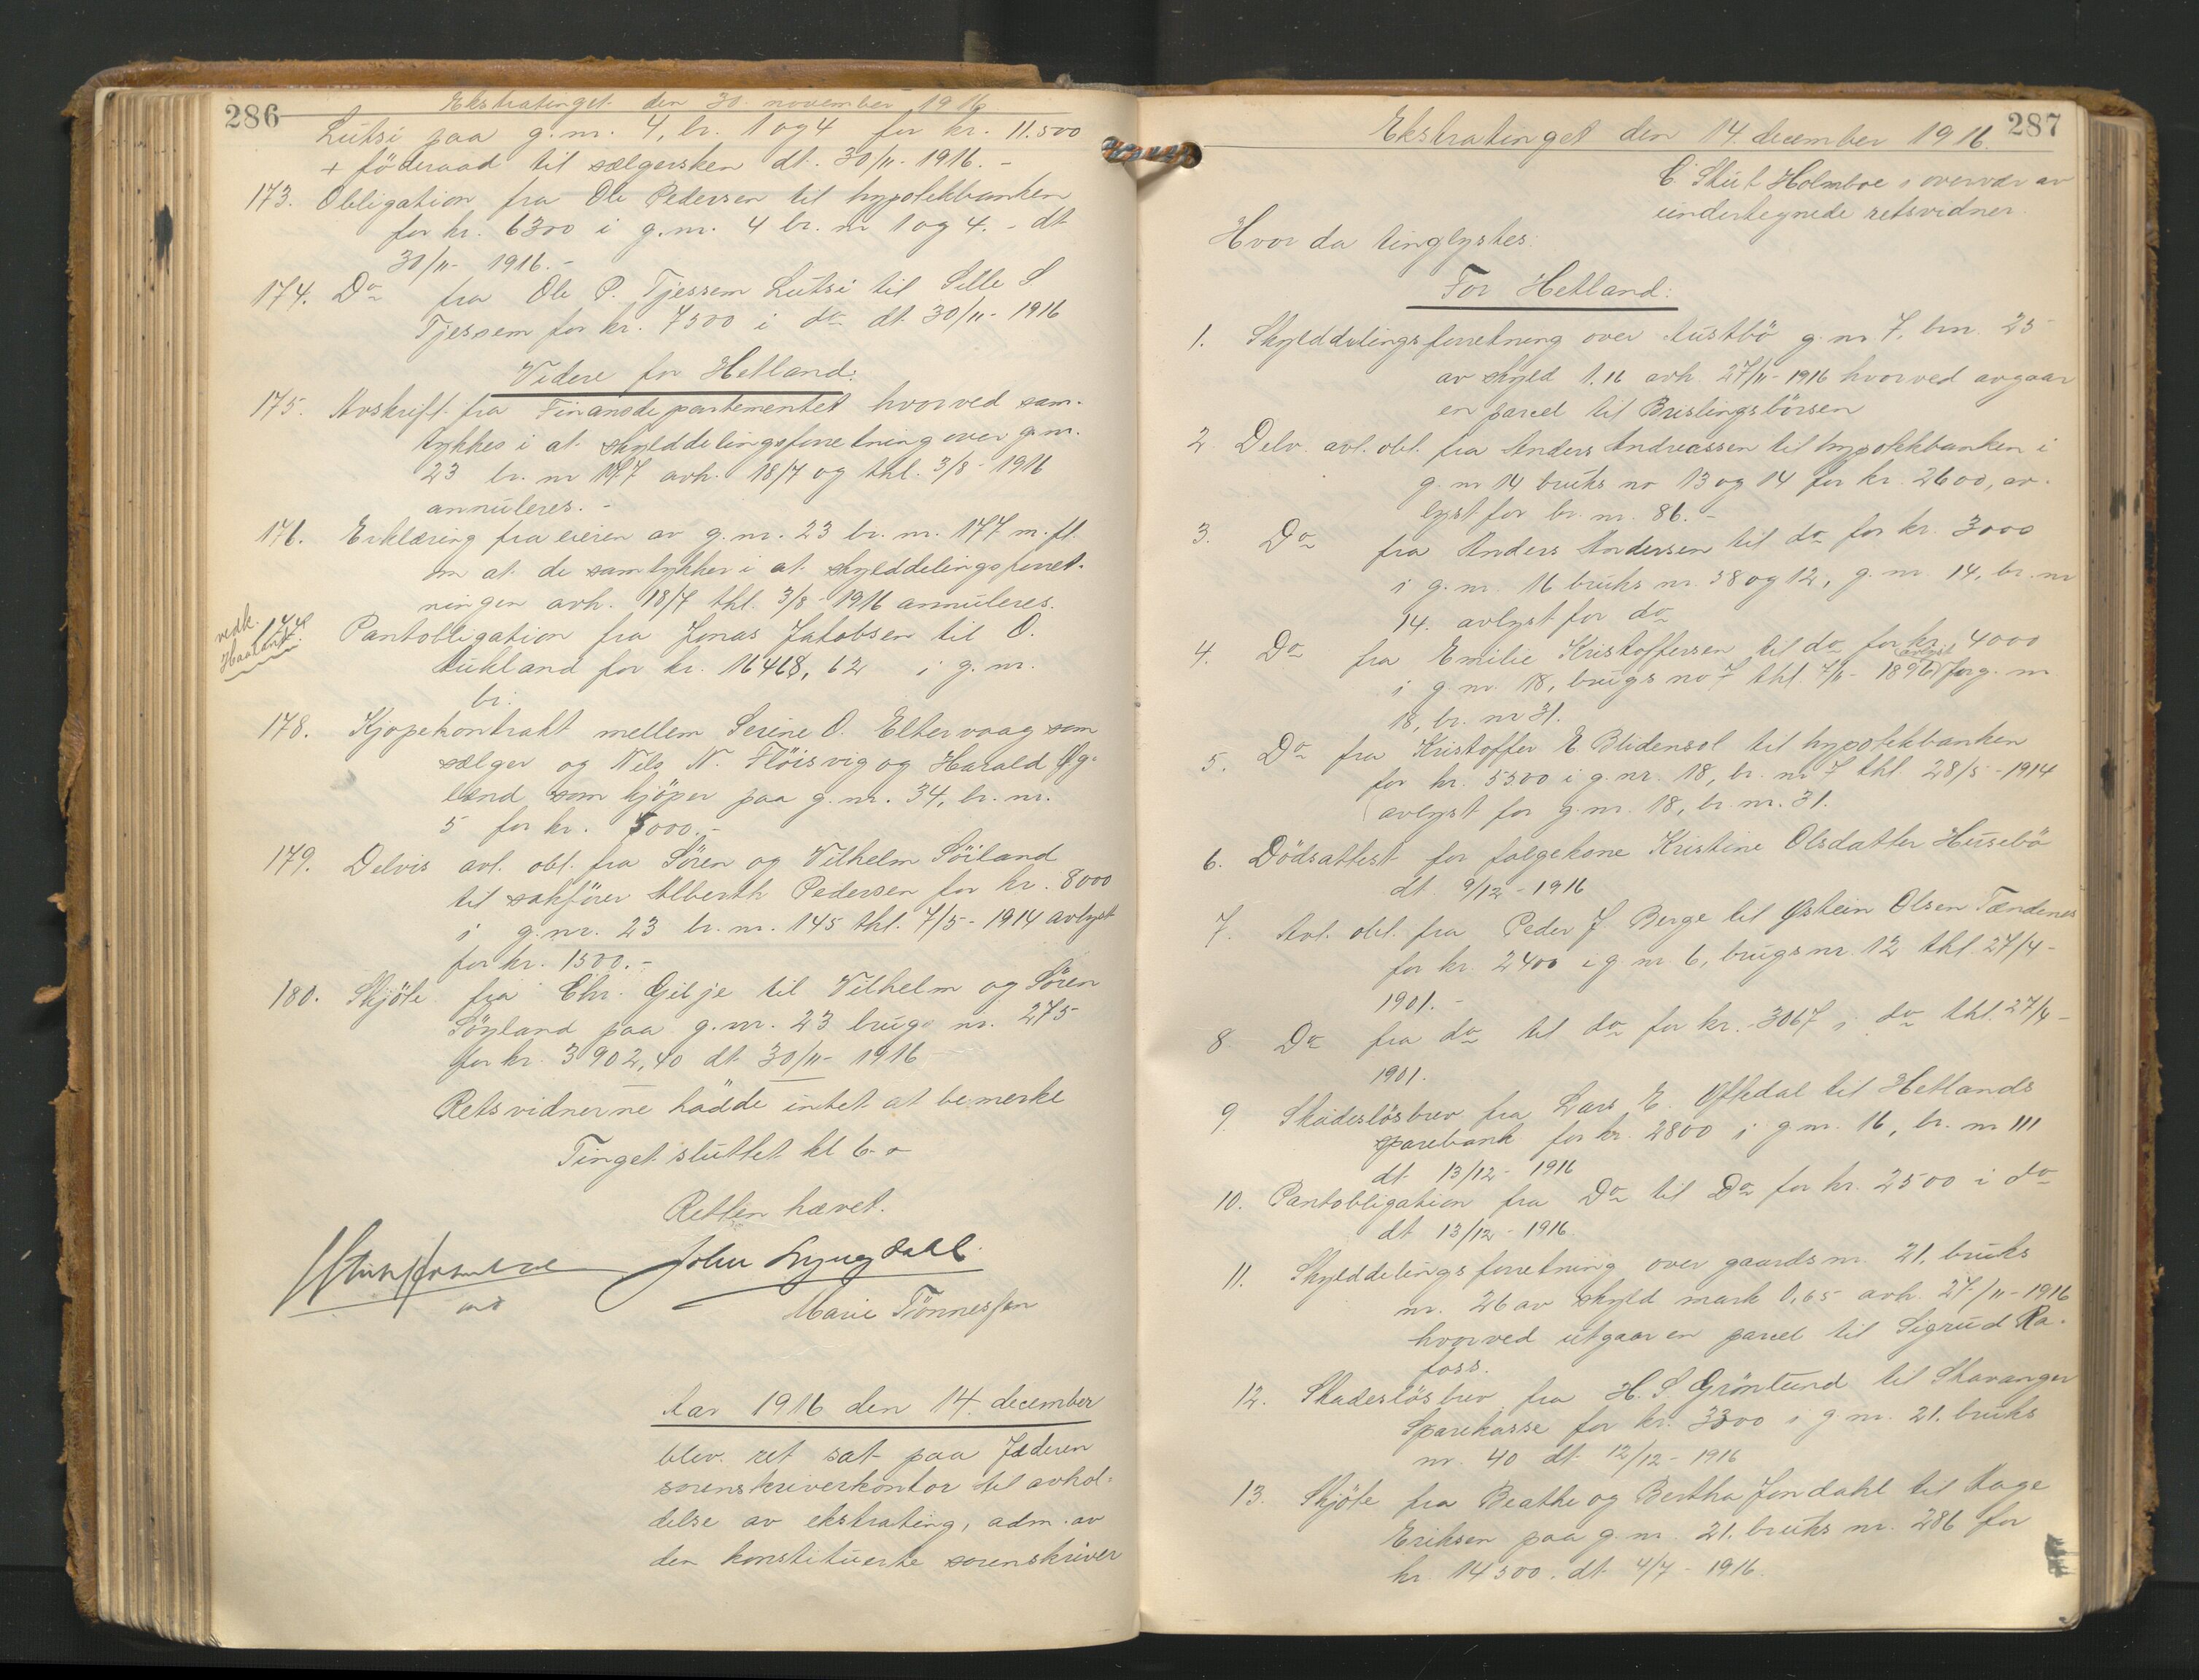 286
Ekstratinget den 30. november 1916.
Lutsi paa g.nr. 4, br. 1 og 4 for kr. 11.500
+ föderaad til sælgersken dt. 30/11- 1916. -
173. Obligation fra Ole Pedersen til hypotekbanken
for kr. 6300 i g.nr. 4 br. nr 1 og 4. - dt
30/11- 1916. -
174. Do fra Ole P. Tjessem Lutsi til Sille S
Tjessem for kr. 7500 i do dt. 30/11- 1916
Videre for Hetland:
175. Avskrift fra Finansdepartementet hvorved sam-
tykkes i at skylddelingsforretning over g.nr.
23 br. nr 177 avh. 18/7 og thl. 3/8 - 1916
annuleres. -
176. Erklæring fra eieren av g.nr. 23 br. nr. 177 m.fl.
om at de samtykker i at skylddelingsforret-
ningen avh. 18/7 thl. 3/8 - 1916 annuleres.
vedk. Haaland
177. Pantobligation fra Jonas Jakobsen til O.
Aukland for kr. 16468,62 i g.nr.
br.
178. Kjøpekontrakt mellem Serine O. Eltervaag som
sælger og Nils N. Flöisvig og Harald Øg-
lend som kjöper paa g.nr. 34, br. nr.
5 for kr. 5000. -
179. Delvis avl. obl. fra Sören og Vilhelm Söiland
til sakförer Alberth Pedersen for kr. 8000
i g.nr. 23 br. nr. 145 thl. 7/5 - 1914 avlyst
for kr. 1500. -
180. Skjöte fra Chr. Gilje til Vilhelm og Sören
Söyland paa g.nr. 23 brugs nr. 275
for kr. 3902,40 dt 30/11- 1916
Retsvidnerne hadde intet at bemerke
Tinget sluttet kl 6. -
Retten hævet.
John Lyngdahl
Marie Tönnessen
Aar 1916 den 14. december
blev ret sat paa Jæderen
sorenskriverkontor til avhol-
delse av ekstrating, adm. av
den konstituerte sorenskriver
287
Ekstratinget den 14. december 1916.
C. Stub Holmboe i overvær av
undertegnede retsvidner.
Hvor da tinglystes:
For Hetland:
1. Skylddelingsforretning over Austbö g.nr 7, bnr. 25
av skyld 1.16 avh. 27/11- 1916 hvorved avgaar
en parcel til Brislingsbörsen
2. Delv. avl. obl. fra Anders Andreassen til hypotekbanken i
g.nr 14 bruks no 13 og 14 for kr. 2600, av-
lyst for br. nr. 86. -
3. Do fra Anders Andersen til do for kr. 3000
i g.nr. 16 bruks nr. 38 og 12, g.nr. 14, br. nr
14. avlyst for do
4. Do fra Emilie Kristoffersen til do for kr. 4000
i g.nr. 18, brugs no 7 thl. 7/5 - 1896 (avlyst) for g.nr
18, br. nr 31.
5. Do fra Kristoffer E Blidensol til hypotekbanken
for kr. 5500 i g.nr. 18, br. nr 7 thl. 28/5 - 1914
(avlyst for g.nr. 18, br. nr. 31.
6. Dödsattest for følgekone Kristine Olsdatter Husebö
dt. 9/12 - 1916
7. Avl. obl. fra Peder J Berge til Østein Olsen Tændenes
for kr. 2400 i g.nr 6, brugs nr. 12 thl. 27/4 -
1901. -
8 Do fra do til do for kr. 3067 i do thl. 27/4 -
1901.
9. Skadeslösbrev fra Lars E. Oftedal til Hetlands
sparebank for kr. 2800 i g.nr. 16, br. nr 111
dt. 13/12 - 1916
10. Pantobligation fra Do til Do for kr. 2500 i do
dt 13/12 - 1916.
11. Skylddelingsforretning over gaards nr. 21, bruks
nr. 26 av skyld mark 0,65 avh. 27/11 - 1916
hvorved utgaar en parcel til Sigrud Ra-
foss.
12. Skadeslösbrev fra H. S. Grönlund til Stavanger
Sparekasse for kr. 3300 i g.nr. 21. bruks
nr. 40 dt. 12/12 - 1916
13. Skjöte fra Beathe og Bertha Jondahl til Aage
Eriksen paa g.nr. 21. bruks nr. 286 for
kr. 14500. dt. 4/7 - 1916.